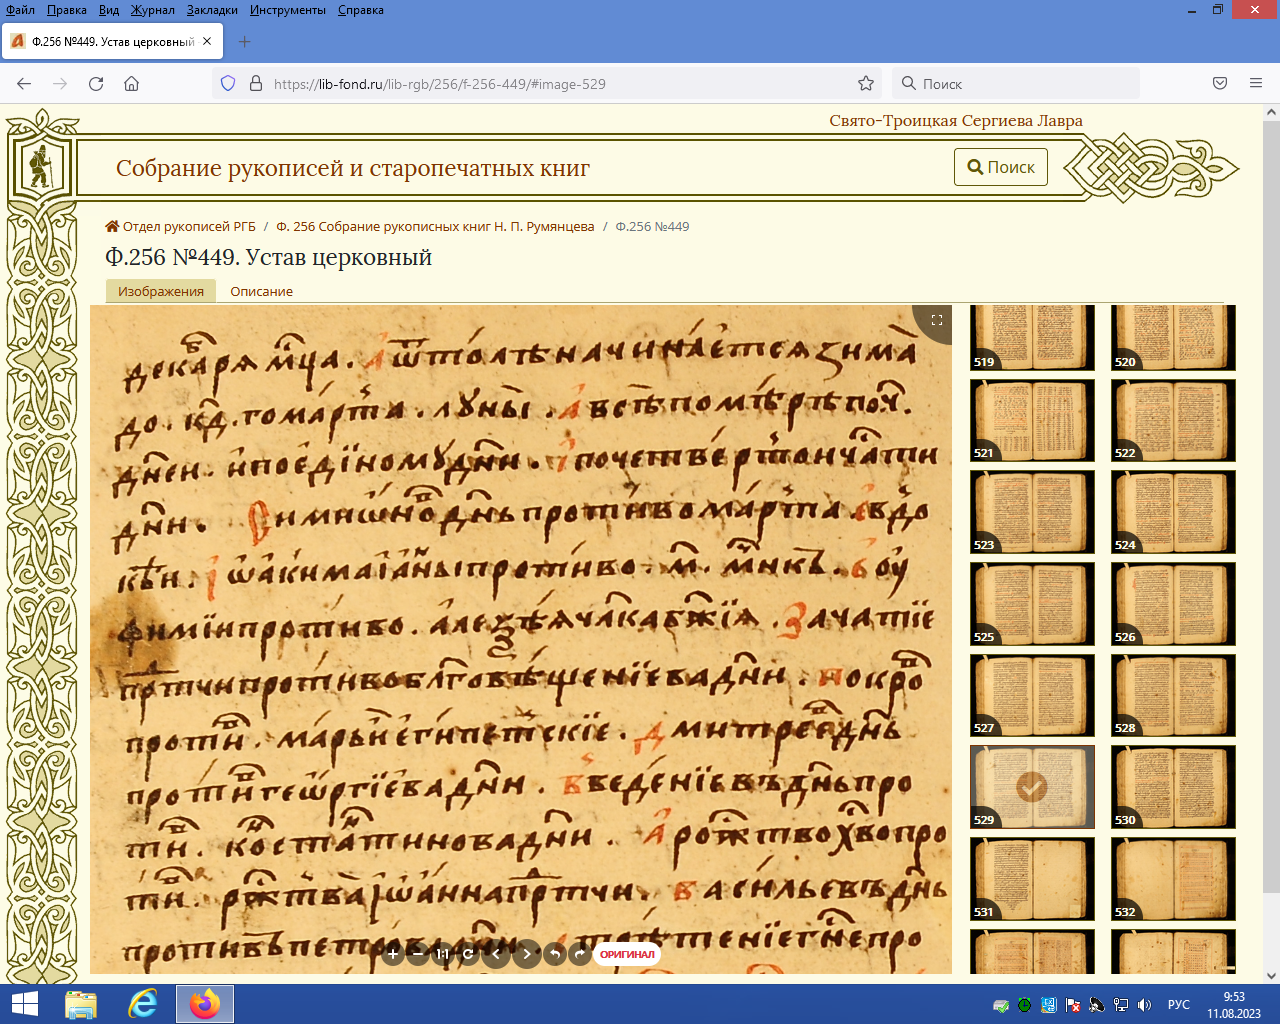 Файл Правка Вид Журнал Закладки Инструменты Справка
Ф.256 №449. Устав церковный
https://lib-fond.ru/lib-rgb/256/f-256-449/#image-529
Поиск
Свято-Троицкая Сергиева Лавра
Собрание рукописей и старопечатных книг
Поиск
Отдел рукописей РГБ / Ф. 256 Собрание рукописных книг Н. П. Румянцева / Ф.256 №449
Ф.256 №449. Устав церковный
Изображения Описание
декабря мца. А ѿтолѣ начинаетсѧ зима
до. кд. го марта. луны. а всѣ по мѣрѣ поч.
дней. и по единому дни. і по четвертом часті
дни. противо марта. вдо
кѣи. і ѡакима і анны противо. м. мнкъ. оу
фиміи противо. алеѯѣѧ члка бжіѧ. Зачатіе
пртчи противо блговѣщеніева дни. покро
проти. марьи египетскіе. дмитреев днь
проти геѡргіева дни. введеніевъ днь про
ти. костѧтинова дни. А рожтво хво про
ти. ржтва іѡанна пртчи. васильевъ днь
противъ петрова дни. стрѣтеніе гне про
1:1
ОРИГИНАЛ
519 520
521 522
523 524
525 526
527 528
529 530
531 532
РУС
9:53
11.08.2023